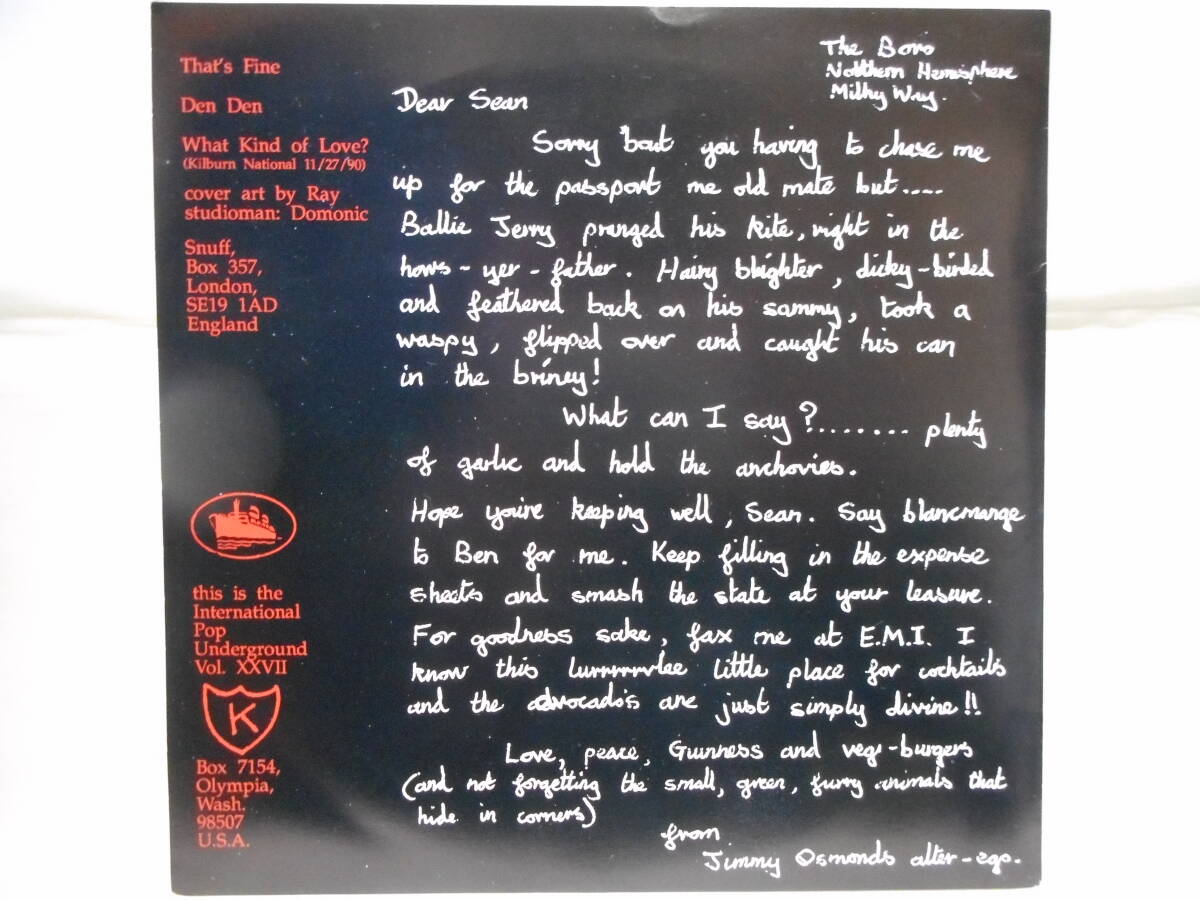 That's Fine
Den Den
What Kind of Love?
(Kilburn National 11/27/90)
cover art by Ray
studioman: Domonic
Snuff,
Box 357,
London,
SE19 1AD
England
this is the
International
Pop
Underground
Vol. XXVII
K
Box 7154,
Olympia,
Wash.
98507
U.S.A.
The Boro
Northern Hemisphere
Milky Way.
Dear Sean
Sorry 'bout you having to chase me
up for the passport me old mate but....
Ballie Jerry pranged his kite, right in the
hows-yer-father. Hairy blighter, dicky-birded
and feathered back on his sammy, took a
waspy, flipped over and caught his can
in the briney!
What can I say?....... plenty
of garlic and hold the anchovies.
Hope you're keeping well, Sean. Say blancmange
to Ben for me. Keep filling in the expense
sheets and smash the state at your leasure.
For goodness sake, fax me at E.M.I. I
know this little place for cocktails
and the advocado's are just simply divine!!
Love, peace, Guinness and vegi-burgers
(and not forgetting the small, green, furry animals that
hide in corners)
from
Jimmy Osmonds alter-ego.